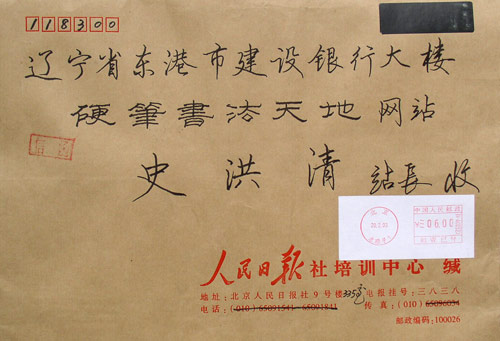 118300
辽宁省东港市建设银行大楼
硬筆書法天地 网站
史洪清 站長 收
中国人民邮政
0600
人民日报社培训中心 缄
地址:北京人民日报社9号楼335室 电报挂号:三八三八
电话:(010)65091541 65091841 传真:(010)65096034
邮政编码:100026